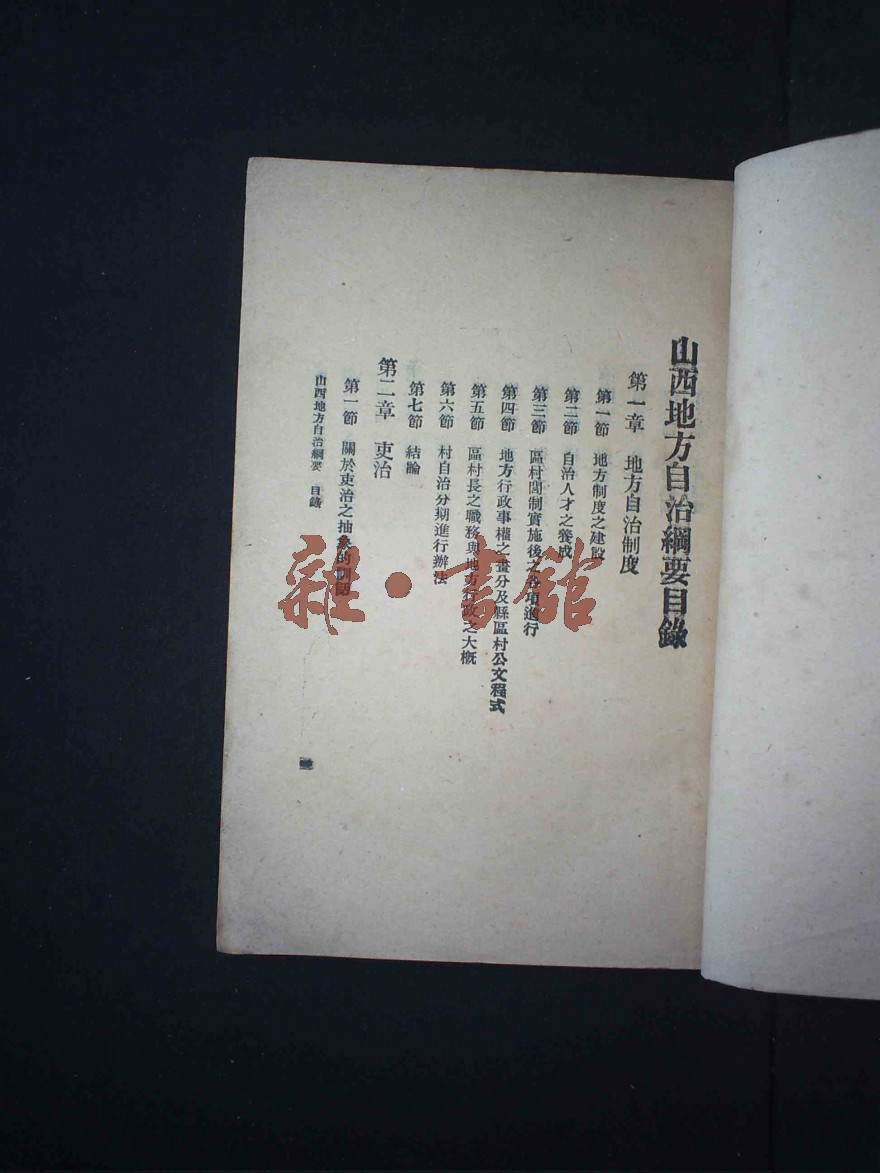 山西地方自治綱要目錄
第一章 地方自治制度
第一節 地方制度之建設
第二節 自治人才之養成
第三節 區村閭制實施後之各項進行
第四節 地方行政事權之畫分及縣區村公文程式
第五節 區村長之職務與地方行政之大概
第六節 村自治分期進行辦法
第七節 結論
第二章 吏治
第一節 關於吏治之抽象的訓話
山西地方自治綱要 目錄
雜·書館